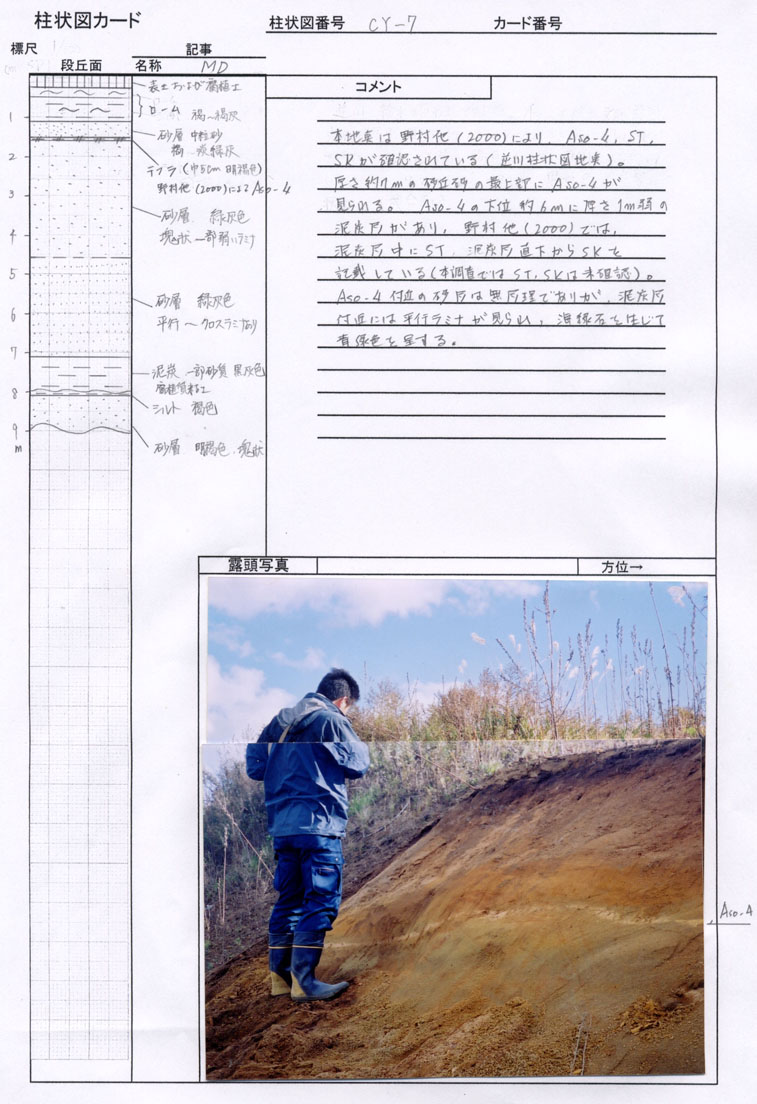 柱状図カード
柱状図番号 CY-7
カード番号
標尺
記事
段丘面
名称 MD
コメント
表土および腐植土
ローム 褐~褐灰
1
砂層 中粒砂
褐~淡緑灰
2
テフラ (巾5cm 明褐色)
野村他(2000)によるAso-4
3
砂層 緑灰色
塊状 一部弱いラミナ
4
5
砂層 緑灰色
6
平行~クロスラミナあり
7
泥炭 一部砂質 黒灰色
腐植質粘土
8
シルト 褐色
9
m
砂層 明褐色、塊状
本地点は野村他(2000)により、Aso-4、ST、
SKが確認されている(並川柱状図地点)。
厚さ約7mの砂丘砂の最上部にAso-4が
見られる。 Aso-4の下位約6mに厚さ1m弱の
泥炭層があり、野村他(2000)では、
泥炭層中にST、泥炭層直下からSKを
記載している(本調査ではST、SKは未確認)。
Aso-4付近の砂層は無層理でありが、泥炭層
付近には平行ラミナが見られ、海緑石を生じて
青緑色を呈する。
露頭写真
方位→
Aso-4